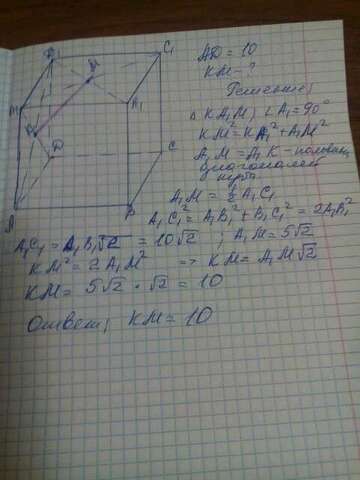 AD = 10
KM - ?
Решение:
Δ KA₁M; ∠A₁ = 90°
KM² = KA₁² + A₁M²
A₁M = A₁K - половины
диагоналей
A₁M = ½ A₁C₁
A₁C₁² = A₁B₁² + B₁C₁² = 2A₁B₁²
A₁C₁ = A₁B₁√2 = 10√2 ; A₁M = 5√2
KM² = 2A₁M² => KM = A₁M√2
KM = 5√2 · √2 = 10
Ответ: KM = 10
C₁
A₁
M
K
D
C
A
B